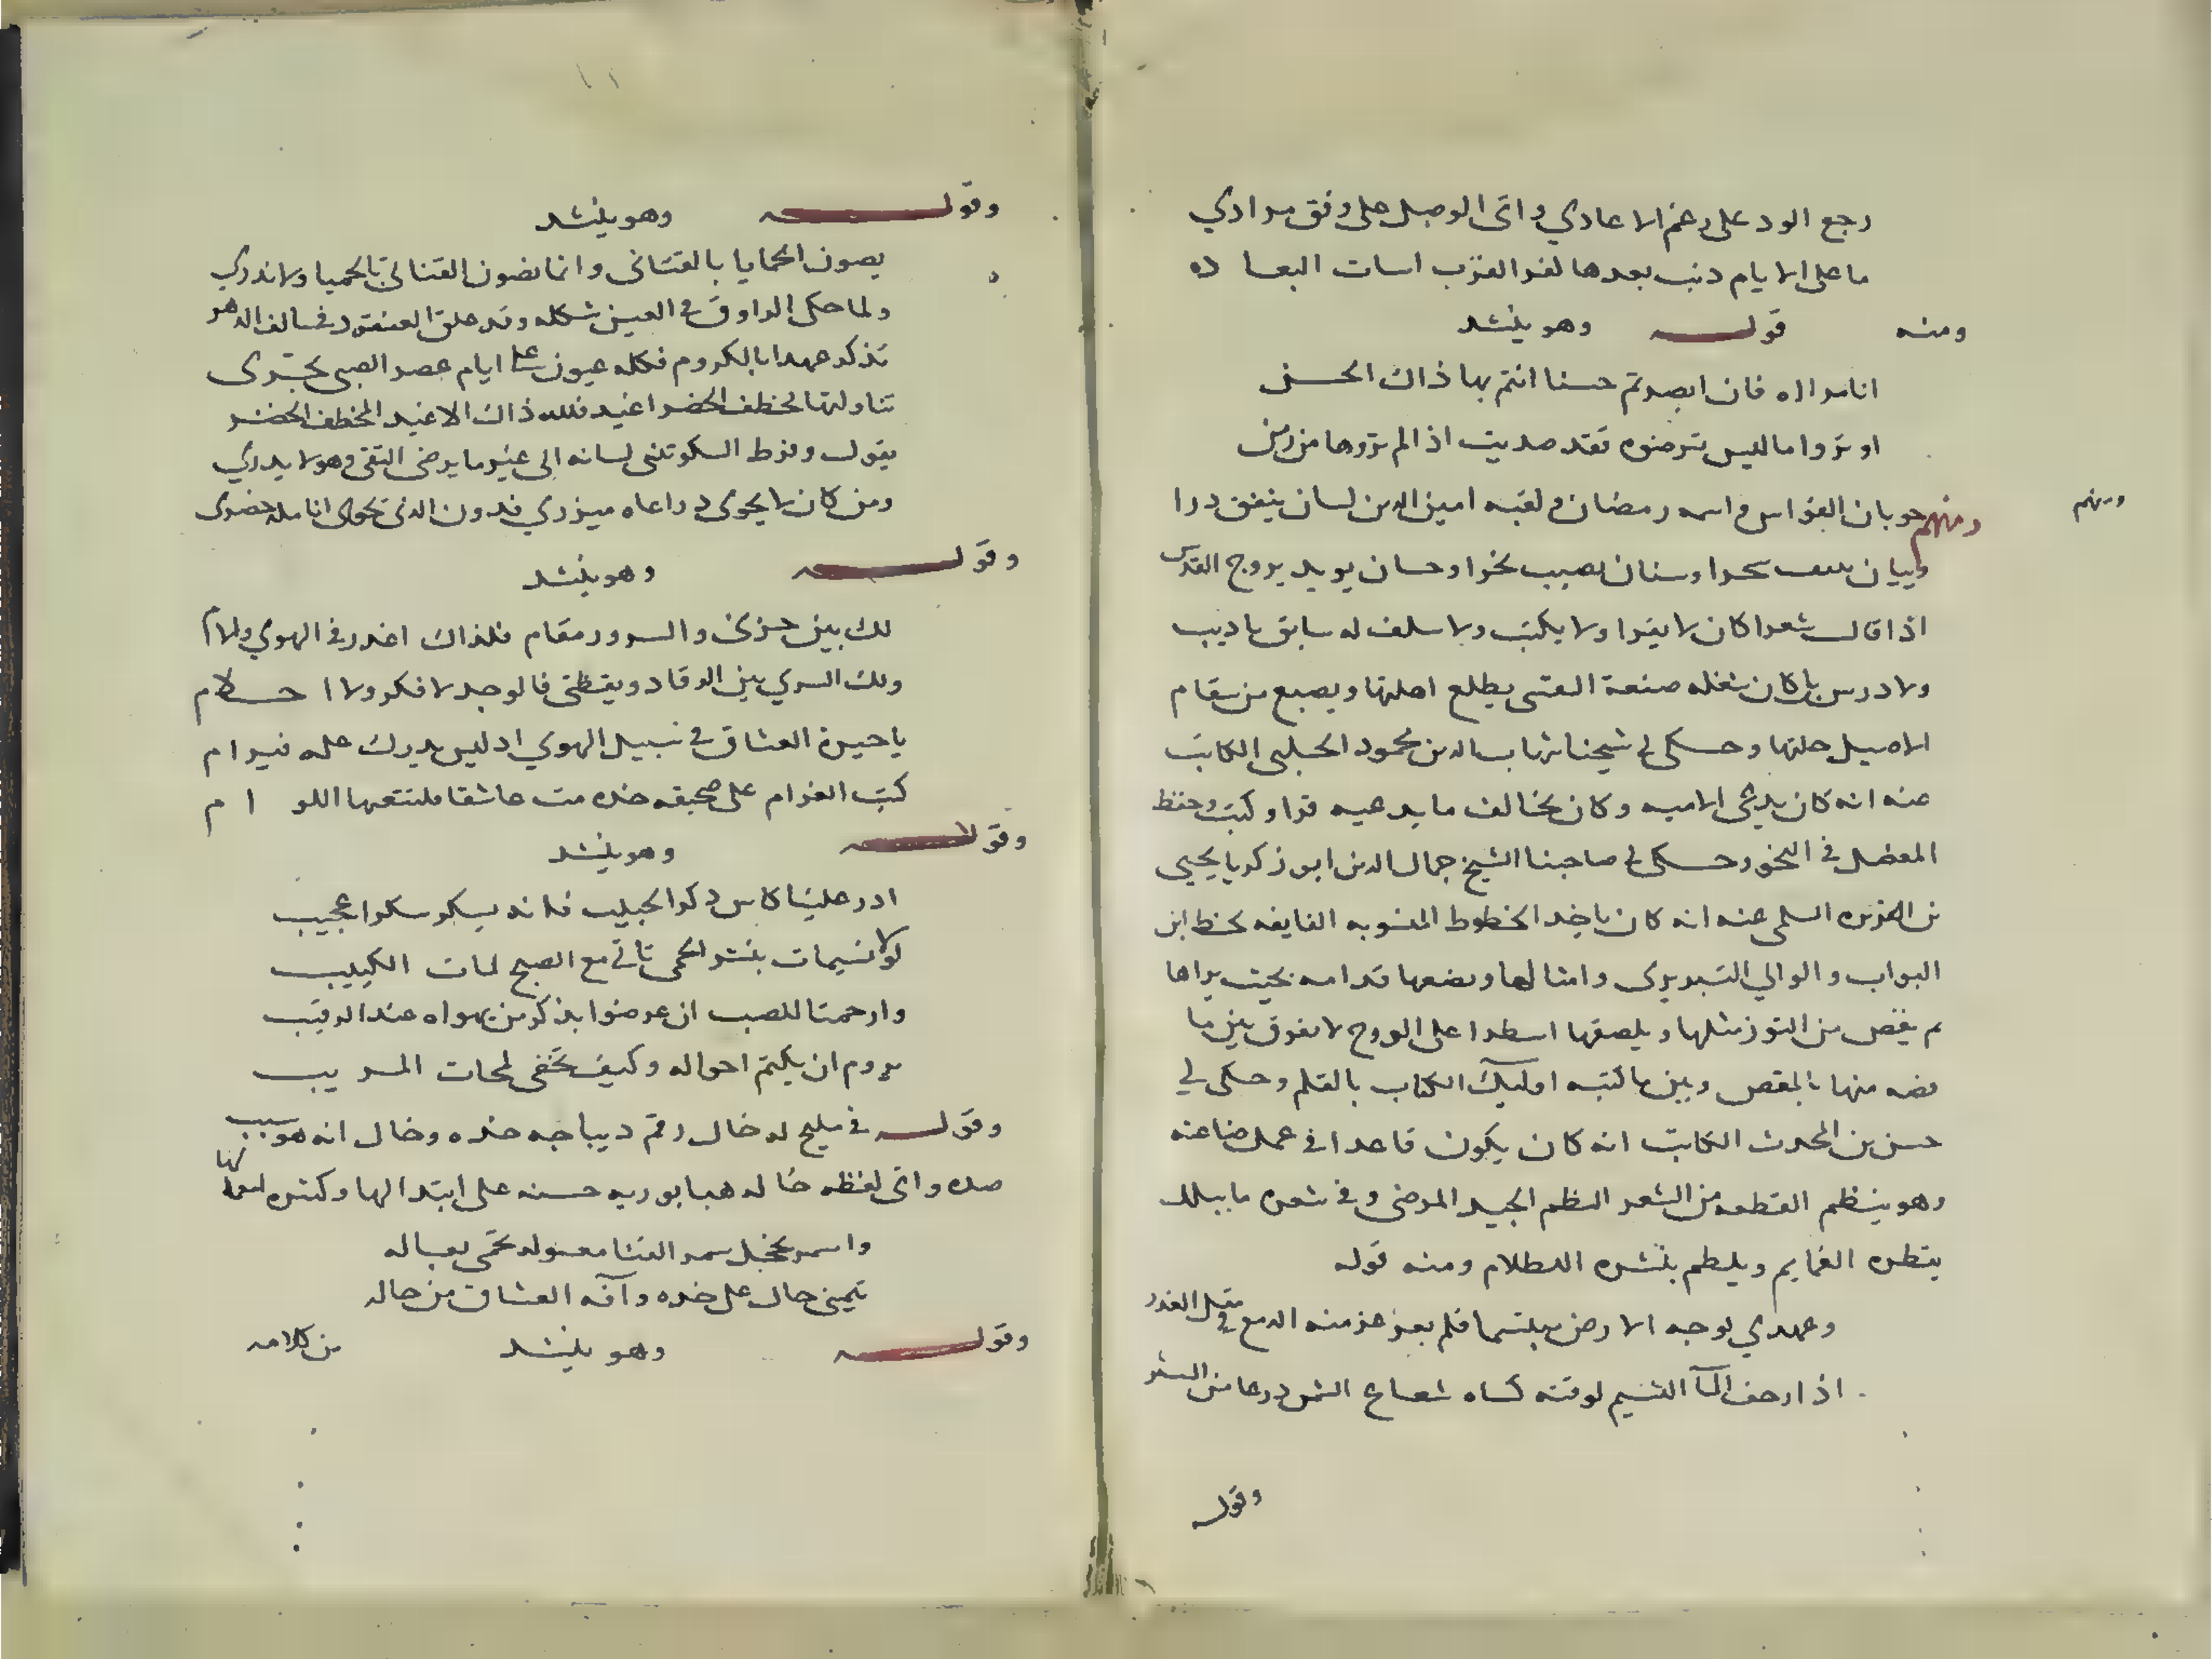 رجع الود على رغم الاعادي واتى الوصل على وفق مرادي
ما على الايام ذنب بعدها لغر القرب اسات البعا ده
ومنه قولـــه وهو ينشد
انا مراه فان ابصرتم حسنا انتم بها ذاك الحسن
او تروا ما ليس ترضوه فقد صديت اذا لم تروها من زمن
ومنهم
ومنهم جوبان القواس واسمه رمضان ولقبه امين الدين لسان ينفق درا
وبيان سحرا وسنان يصيب نحرا وحسان يويد بروح القدس
اذا قال شعرا كان لا يقرا ولا يكتب ولا سلف له سابق باديب
ولا درس بل كان شغله صنعة القسى يطلع اهلتها ويصبع من سقام
الاصيل حلتها وحكى لي شيخنا شهاب الدين محمود الحلبي الكاتب
عنه انه كان يدعي الاميه وكان يخالف ما يدعيه قرا وكتب وحفظ
المفصل في النحو وحكى لي صاحبنا الشيخ جمال الدين ابو زكريا يحيى
السلمي عنه انه كان ياخذ الخطوط المنسوبه الفايقه كخط ابن
البواب والوالي التبريزى وامثالها ويضعها قدامه بحيث يراها
ثم يقص من التوز مثلها ويلصقها اسطرا على الورح لا يفرق بين ما
قصه منها بالمقص وبين ما كتبه اوليك الكتاب بالقلم وحكى لي
حسن بن المحدث الكاتب انه كان يكون قاعدا في عمل صناعته
وهو ينظم القطعه من الشعر النظم الجيد المرضى وفي شعره ما يبلل
بقطره الغمايم ويلطم بنشره اللطلام ومنه قوله
وعهدي بوجه الارض مبتسما فلم منه الدمع في مقل الغدر
اذا ارجف المآ النسيم لوقته كساه شعاع الشمس درعا من التبر
وقوله
وقولـــه وهو ينشد
يصون الحمايا بالقناني وانما نصون القناني بالحميا ولا ندري
ولما حكى الراووق في العين شكله وقد علق العنقود في سالف الدهر
تذكر عهدا بالكروم فكله عيون على ايام عصر الصبى تجرى
تناولتها مخطف الخضر اغيد فلله ذاك الاغيد المخطف الخضر
يقول وفرط السكر تثنى لسانه الى غير ما يرضى التقى وهو لا يدري
ومن كان لا يحوى ذراعاه ميزري فدون الذي تحوى انامله خضرى
وقولـــه وهو ينشد
لك بين حزني والسرور مقام فلذاك اعذر في الهوي ولاام
ولك السري بين الرقاد ويقظتى فالوجد لا فكر ولا احـــلام
يا حيرة العشاق في سبيل الهوي اذ ليس يدرك عليه فيرام
كتب الغرام على صحيفه خده مت عاشقا اللوام
وقولـــه وهو ينشد
ادر علينا كاس ذكر الحبيب فانه يسكر سكرا عجيب
لولا نسيمات بنشر الحمى تاتي مع الصبح لمات الكييب
وارحمتا للصب ان عرضوا بذكر من يهواه عند الرقيب
يروم ان يكتم احواله وكيف تخفى لمحات المريب
وقولـــه في مليح له خال رقم ديباجه خده وخال انه هو سبب
صده واتى لفظه خاله حسنه على ابتدالها وكثره
واسمر يخجل سمر القنا معسوله تحمى بعساله
يتمنى خال على خده وآفه العشاق من خاله
وقولـــه وهو ينشد من كلامه